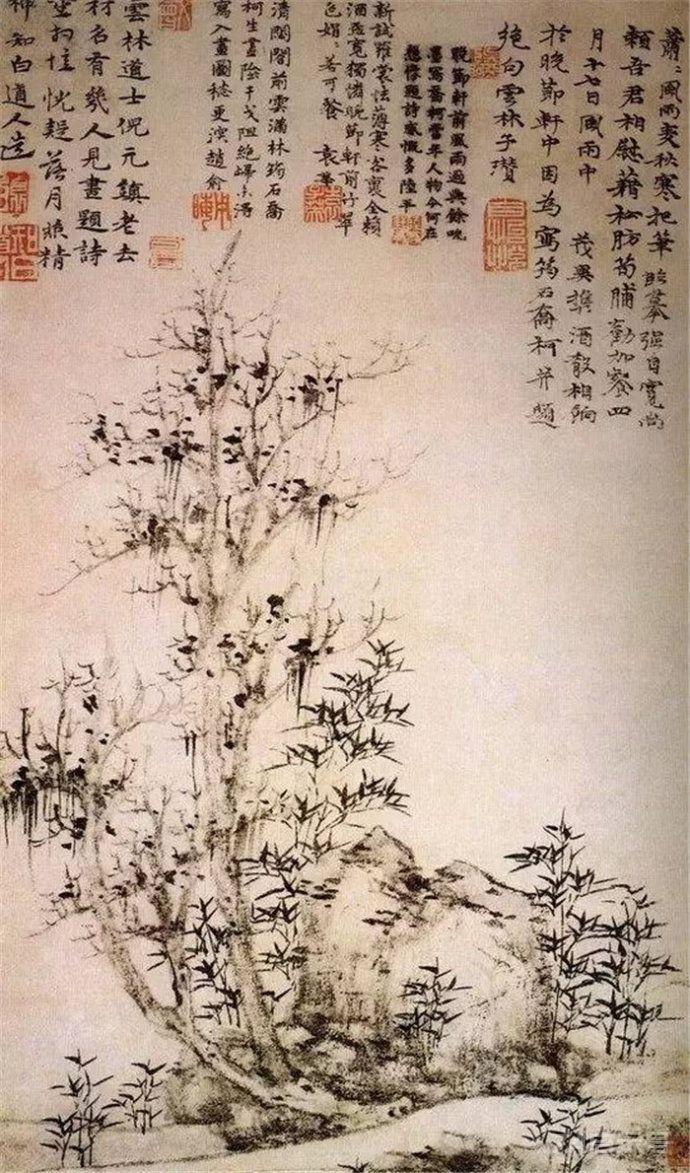 蕭〻風雨麥秋寒把筆臨摹強自寬尚
賴吾君相慰藉松肪筍脯勸加餐四
月十七日風雨中 茂異攜酒殽相餉
於晚節軒中因為寫筠石喬柯并題
絕句雲林子瓚
晚節軒前風雨過興餘吮
墨寫喬柯當年人物今何在
想像題詩感慨多陸平
新試羅裳怯薄寒客裏全賴
酒盃寬獨憐晚節軒前子翠
色娟〻若可餐 袁華
清閟閣前雲滿林筠石喬
柯生晝陰干戈阻絕歸未得
寫入畫圖愁更深趙俞
雲林道士倪元鎮老去
材名有幾人見畫題詩
空相憶恍疑落月照精
神知白道人造